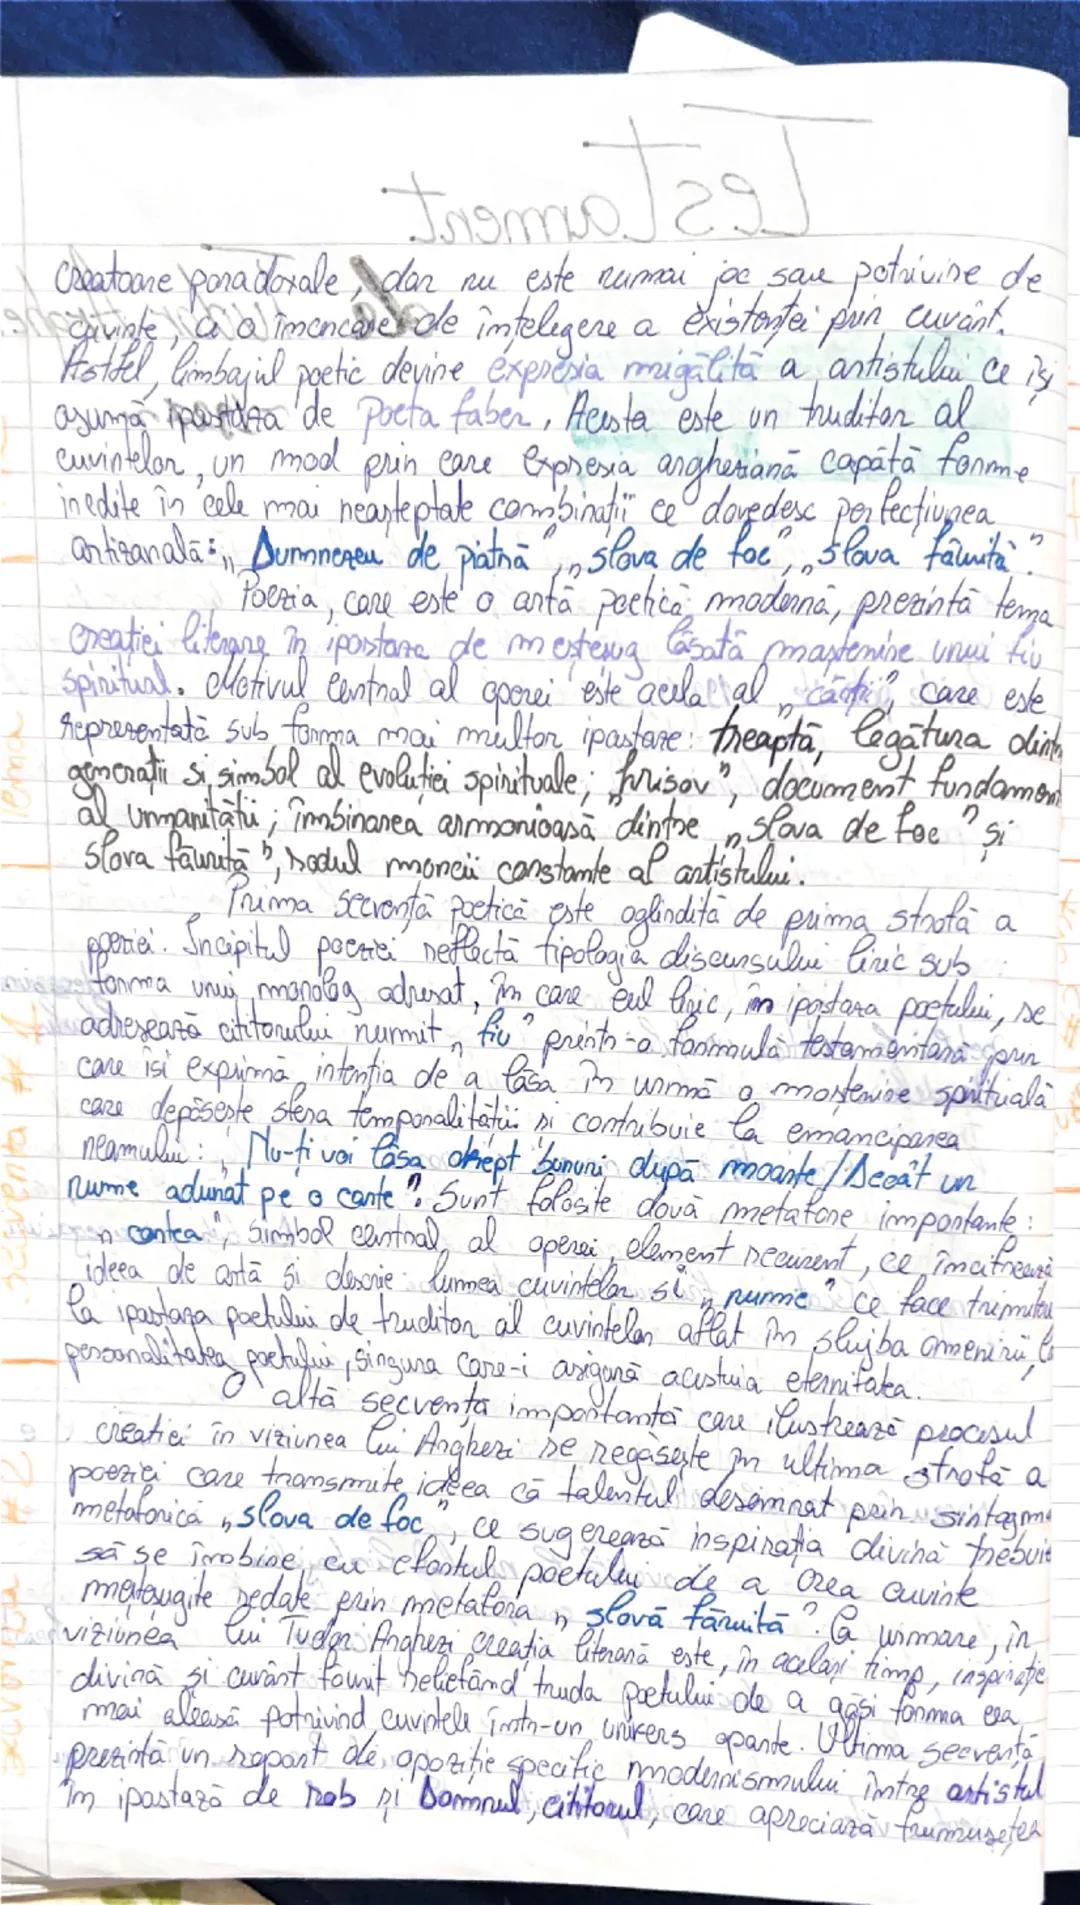 Testament
creatoare paradoxale, dar nu este numai joc sau potrivire de
cuvinte, ci o încercare de înțelegere a existenței prin cuvânt.
Astfel, limbajul poetic devine expresia migălită a artistului ce își
asumă ipostaza de poeta faber. Acesta este un truditor al
cuvintelor, un mod prin care expresia argheziană capătă forme
inedite în cele mai neașteptate combinații ce dovedesc perfecțiunea
artizanală: „Dumnezeu de piatră", „slova de foc", „slova făurită".
Poezia, care este o artă poetică modernă, prezintă tema
creației literare în ipostaza de meșteșug lăsată moștenire unui fiu
spiritual. Motivul central al operei este acela al „cărții", care este
reprezentată sub forma mai multor ipostaze: treaptă, legătura dintre
generații și simbol al evoluției spirituale; „hrisov", document fundament
al umanității; îmbinarea armonioasă dintre „slova de foc" și
slova făurită", rodul muncii constante al artistului.
Prima secvență poetică este oglindită de prima strofă a
poeziei. Incipitul poeziei reflectă tipologia discursului liric sub
forma unui monolog adresat, în care eul liric, în ipostaza poetului, se
adresează cititorului numit „fiu" printr-o formulă testamentară prin
care își exprimă intenția de a lăsa în urmă o moștenire spirituală
care depășește sfera temporalității și contribuie la emanciparea
neamului: „Nu-ți voi lăsa drept bunuri după moarte/Decât un
nume adunat pe o carte". Sunt folosite două metafore importante:
„cartea", simbol central al operei, element recurent, ce încifrează
ideea de artă și descrie lumea cuvintelor și „nume" ce face trimitere
la ipostaza poetului de truditor al cuvintelor aflat în slujba omenirii, la
personalitatea poetului, singura care-i asigură acestuia eternitatea.
O altă secvență importantă care ilustrează procesul
creației în viziunea lui Arghezi se regăsește în ultima strofă a
poeziei care transmite ideea că talentul desemnat prin sintagma
metaforică „slova de foc", ce sugerează inspirația divină trebuie
să se îmbine cu efortul poetului de a crea cuvinte
meșteșugite redate prin metafora „slovă făruită". Ca urmare, în
viziunea lui Tudor Arghezi creația literară este, în același timp, inspirație
divină și cuvânt făurit reliefând truda poetului de a găsi forma cea
mai aleasă potrivind cuvintele într-un univers aparte. Ultima secvență
prezintă un raport de opoziție specific modernismului între artistul
în ipostază de rob și Domnul, cititorul, care apreciază frumusețea